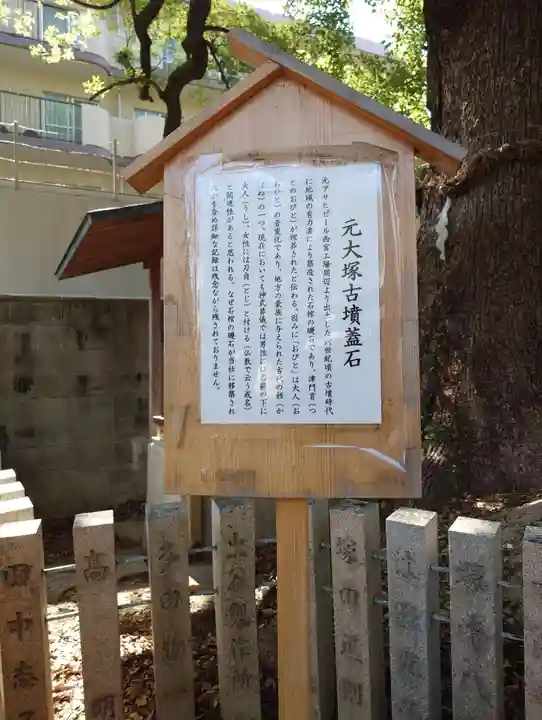 元大塚古墳蓋石
元アサヒビール西宮工場周辺より出土した六世紀頃の古墳時代
に地域の有力者により築造された石棺の礎石であり、津門首(つ
とのおびと)が埋葬されたと伝わる。因みに「おびと」は大人(お
おひと)の音変化であり、地方の豪族に与えられた古代の姓(か
ばね)の一つ。現在においても神式葬儀では男性には名前の下に
大人(うし)、女性には刀自(とじ)と付ける(仏教で云う戒名)
と関連性があると思われる。なぜ石棺の礎石が当社に移築され
たかを含め詳細な記録は残念ながら残されておりません。
田中志
高
明
山
製作所
塚田